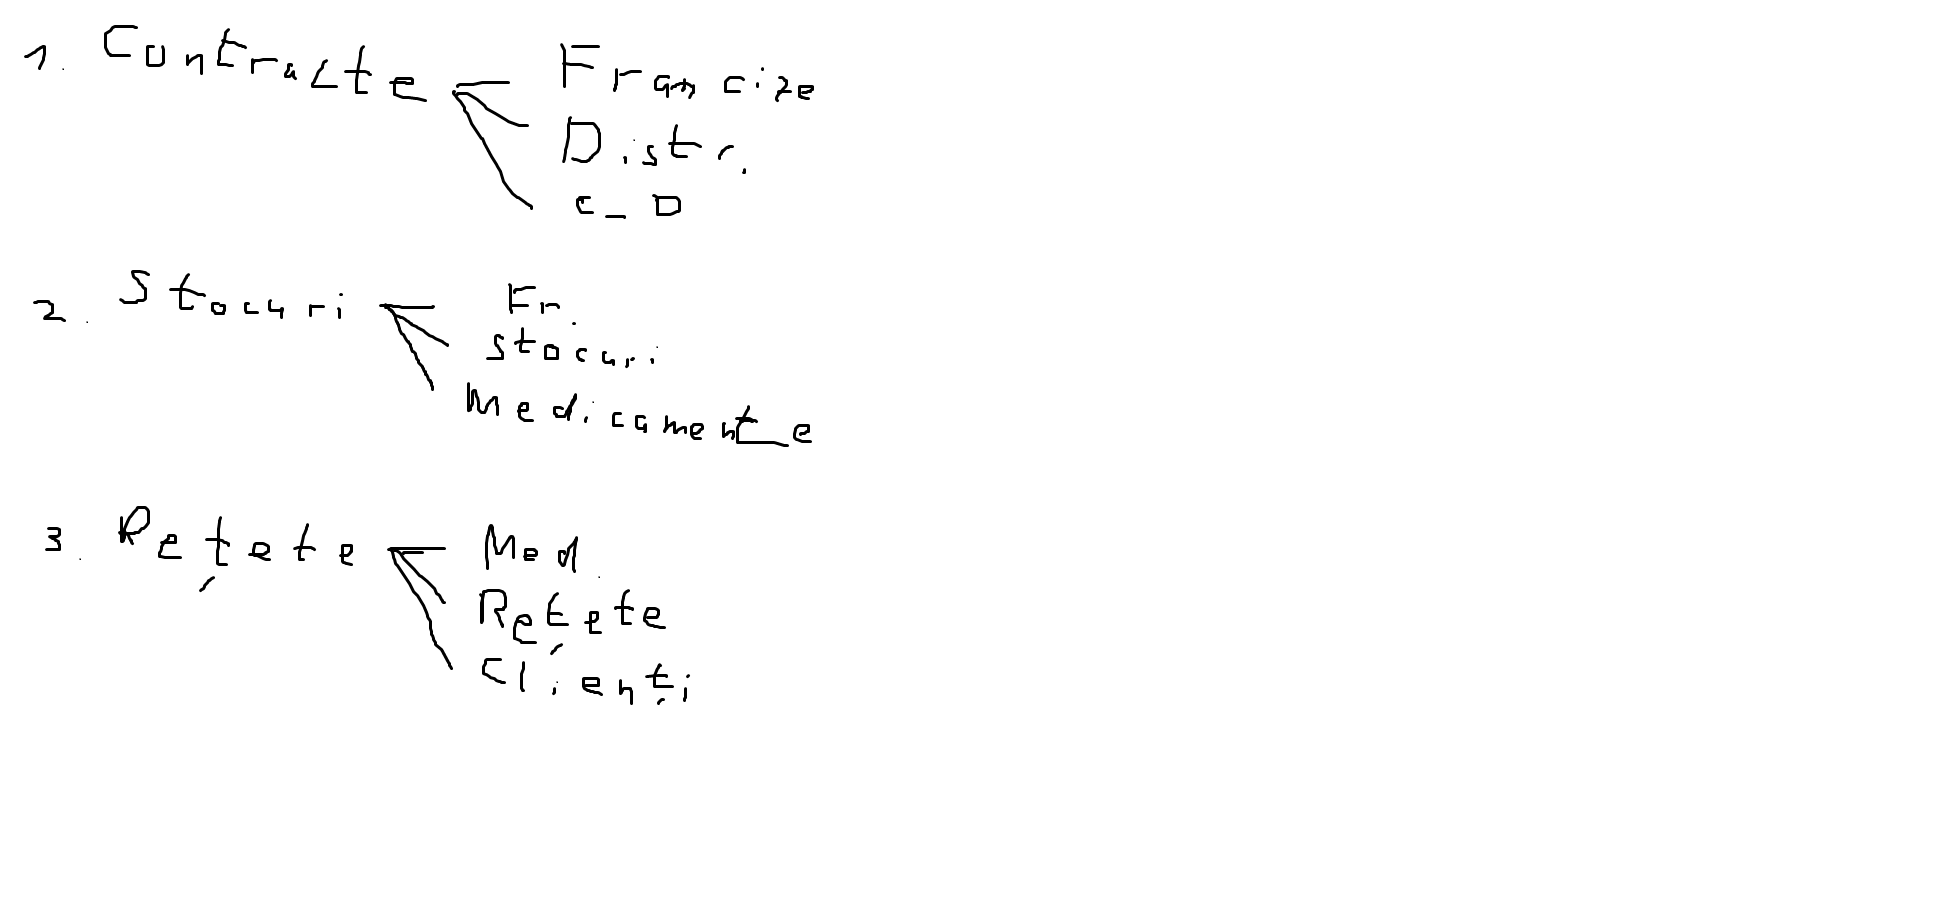 1. Contracte Francize
Distr.
C_D
2. Stocuri Fr.
Stocuri
Medicamente
3. Rețete Med.
Rețete
Clienți